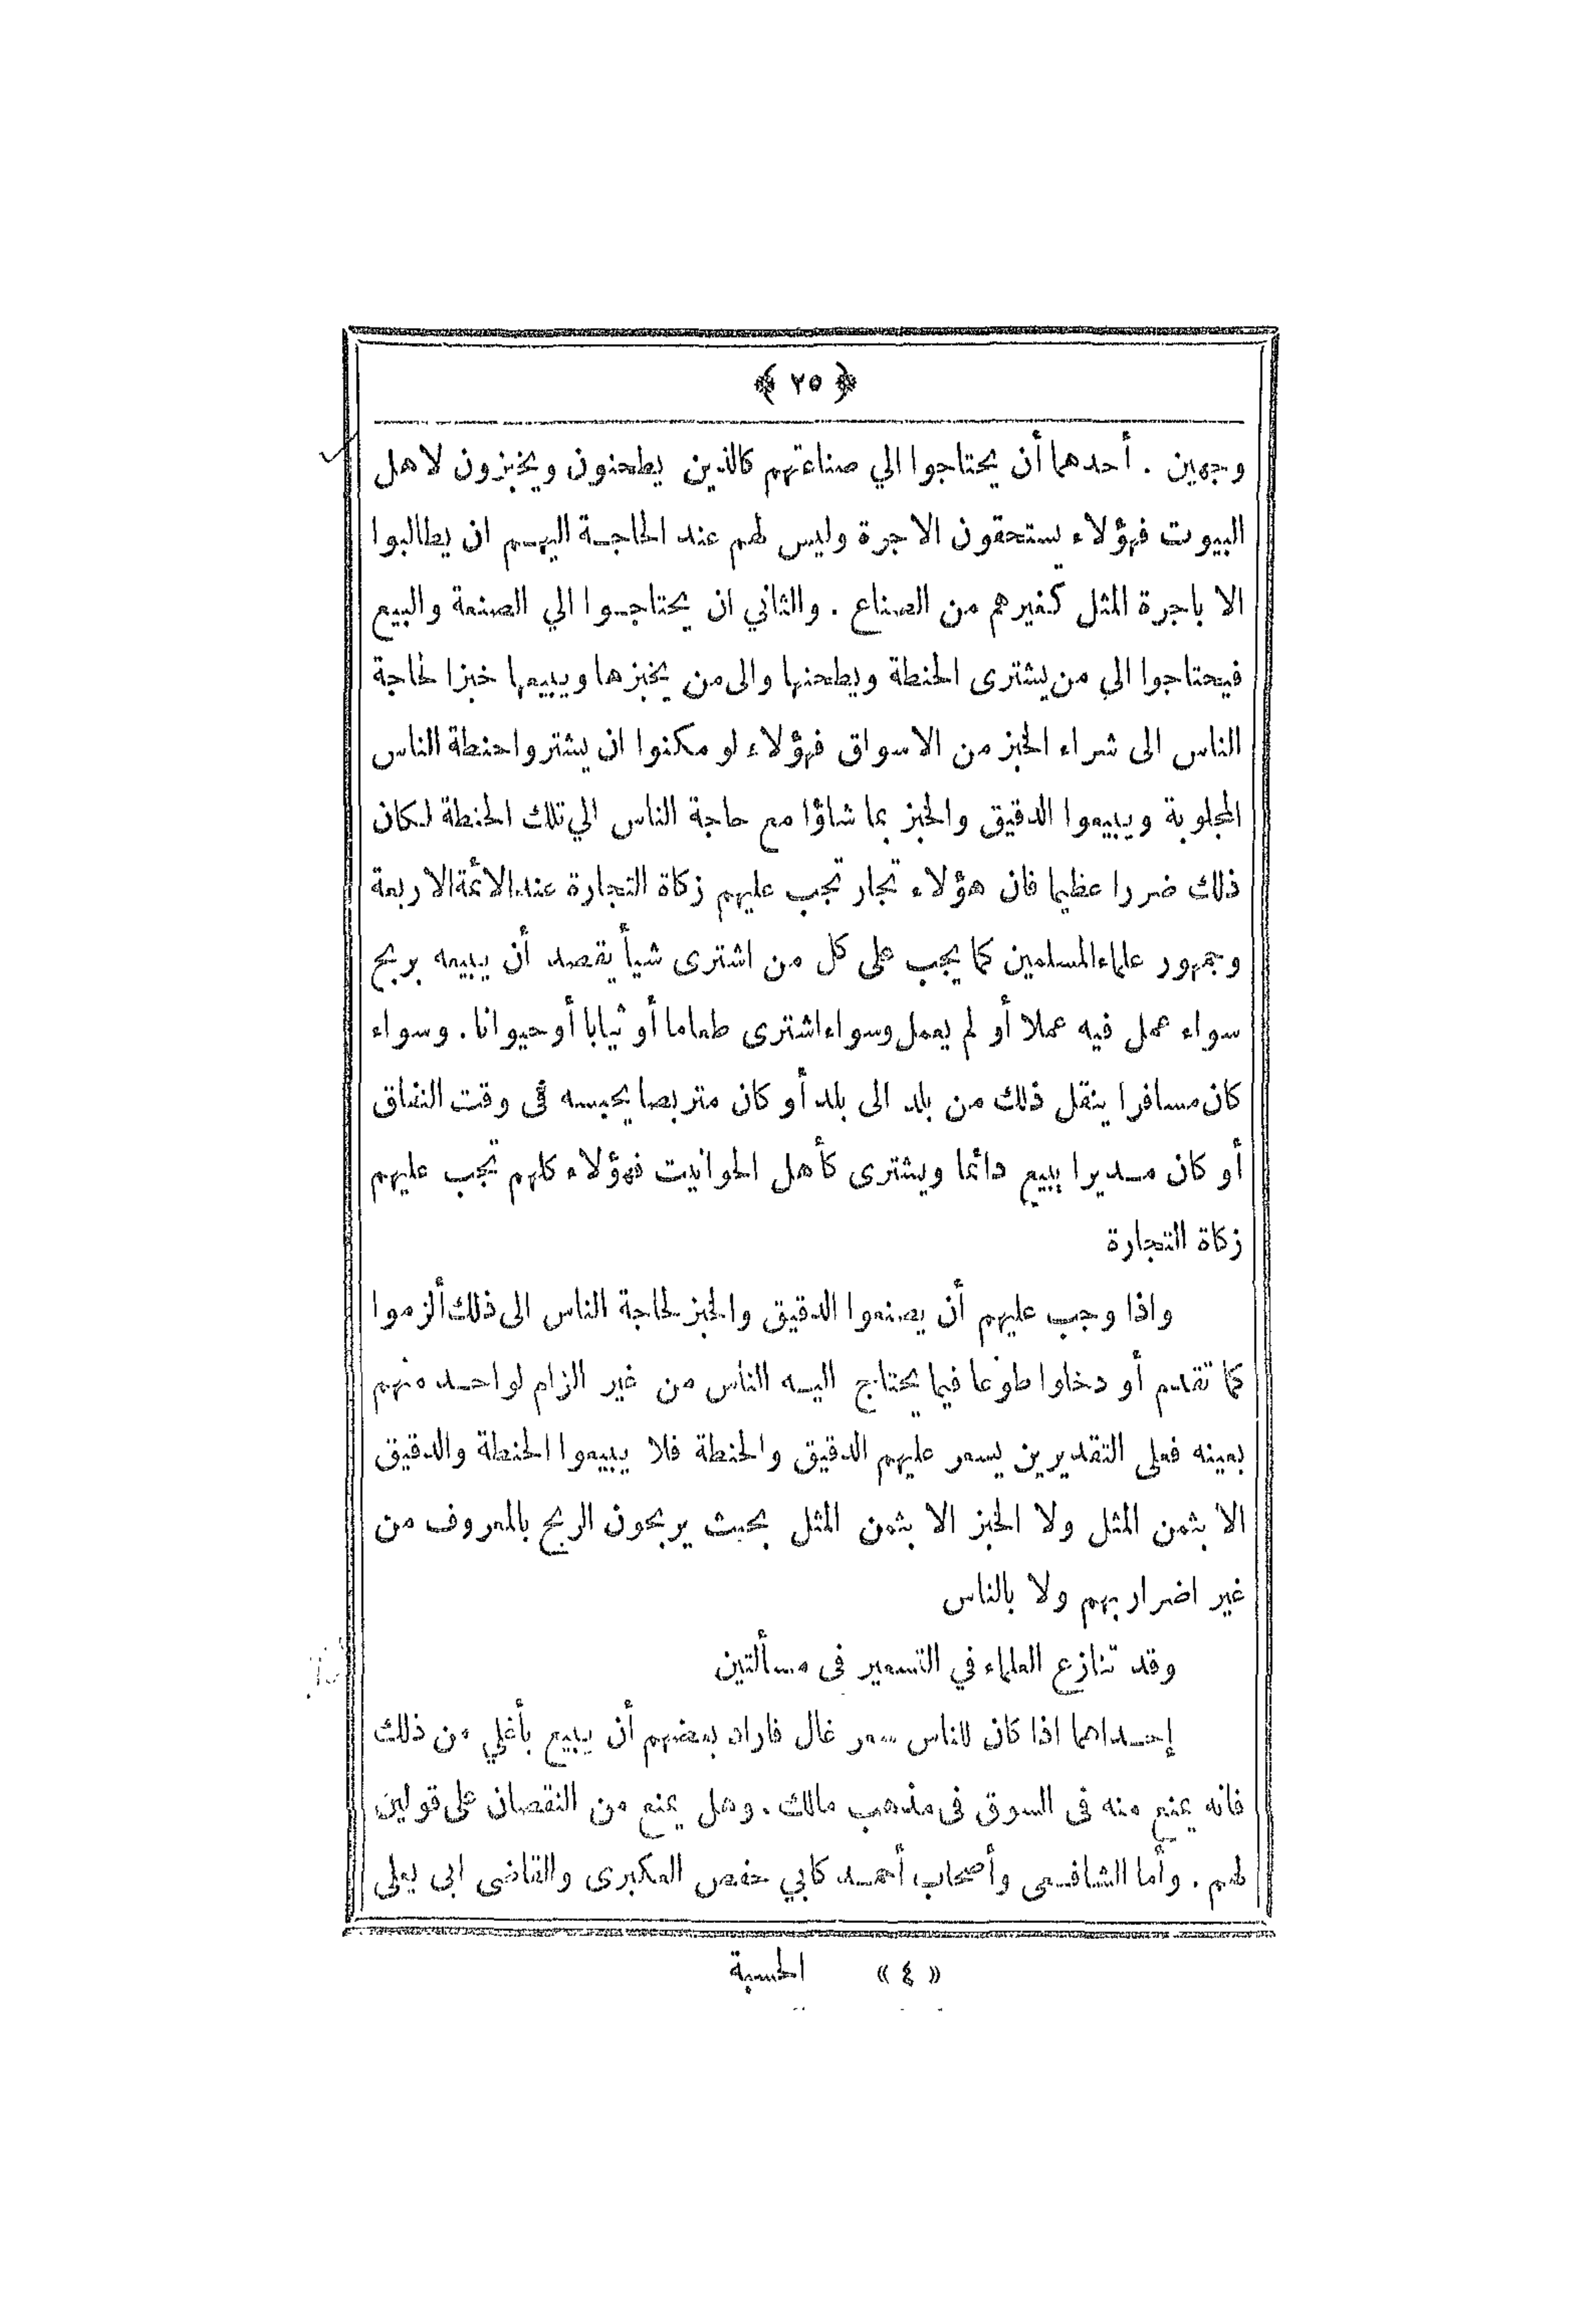 ﴿ ٢٥ ﴾
وجهين . أحدهما أن يحتاجوا الي صناعتهم كالذين يطحنون ويخبزون لاهل
البيوت فهؤلاء يستحقون الاجرة وليس لهم عند الحاجة اليهم ان يطالبوا
الا باجرة المثل كغيرهم من الصناع . والثاني ان يحتاجوا الي الصنعة والبيع
فيحتاجوا الي من يشترى الحنطة ويطحنها والى من يخبزها ويبيعها خبزا لحاجة
الناس الى شراء الخبز من الاسواق فهؤلاء لو مكنوا ان يشتروا حنطة الناس
المجلوبة ويبيعوا الدقيق والخبز بما شاؤا مع حاجة الناس الي تلك الحنطة لكان
ذلك ضررا عظيما فان هؤلاء تجار تجب عليهم زكاة التجارة عند الائمة الاربعة
وجمهور علماء المسلمين كما يجب على كل من اشترى شيأ يقصد أن يبيعه بربح
سواء عمل فيه عملا أو لم يعمل وسواء اشترى طعاما أو ثيابا أو حيوانا . وسواء
كان مسافرا ينقل ذلك من بلد الى بلد أو كان متربصا يحبسه فى وقت النفاق
أو كان مديرا يبيع دائما ويشترى كأهل الحوانيت فهؤلاء كلهم تجب عليهم
زكاة التجارة
واذا وجب عليهم أن يصنعوا الدقيق والخبز لحاجة الناس الى ذلك ألزموا
كما تقدم أو دخلوا طوعا فيما يحتاج اليه الناس من غير الزام لواحد منهم
بعينه فعلى التقديرين يسعر عليهم الدقيق والحنطة فلا يبيعوا الحنطة والدقيق
الا بثمن المثل ولا الخبز الا بثمن المثل بحيث يربحون الربح بالمعروف من
غير اضرار بهم ولا بالناس
وقد تنازع العلماء في التسعير فى مسألتين
إحداهما اذا كان للناس سعر غال فاراد بعضهم أن يبيع بأغلي من ذلك
فانه يمنع منه فى السوق فى مذهب مالك . وهل يمنع من النقصان على قولين
لهم . وأما الشافعى وأصحاب أحمد كابي حفص العكبرى والقاضى ابى يعلى
« ٤ » الحسبة